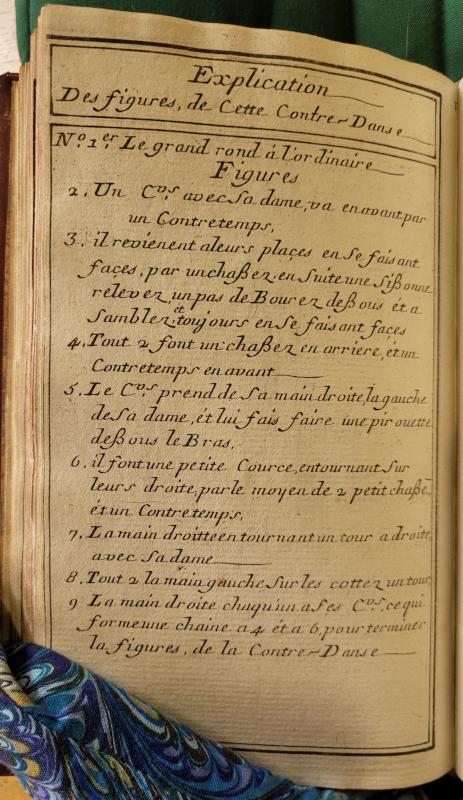 Explication
Des figures, de Cette Contre-Danse
No. 1er. Le grand rond á l'ordinaire
Figures
2. Un Cvs. avec Sa dame, va en avant par
un Contretemps,
3. il revienent a leurs plaçes en Se fais ant
façes, par un chaßez, en Suite une Sißonne
relevez, un pas de Bourez deßous ét a
Samblez, ét toujours en se fais ant façes
4. Tout 2 font un chaßez en arriere, ét un
Contretemps en avant
5. Le Cvs. prend de Sa main droite, la gauche
de Sa dame, ét lui fais faire une pirouette
deßous le Bras,
6. il font une petite Cource, en tournant Sur
leurs droite, par le moyen de 2 petit chaßé,
ét un Contretemps,
7. La main droitte en tournant un tour a droite,
avec Sa dame
8. Tout 2 la main gauche Sur les cottez un tour
9 La main droite chaqu'un a Ses Cvs., ce qui
forme une chaine a 4 ét a 6, pour terminer
la figures, de la Contre-Danse